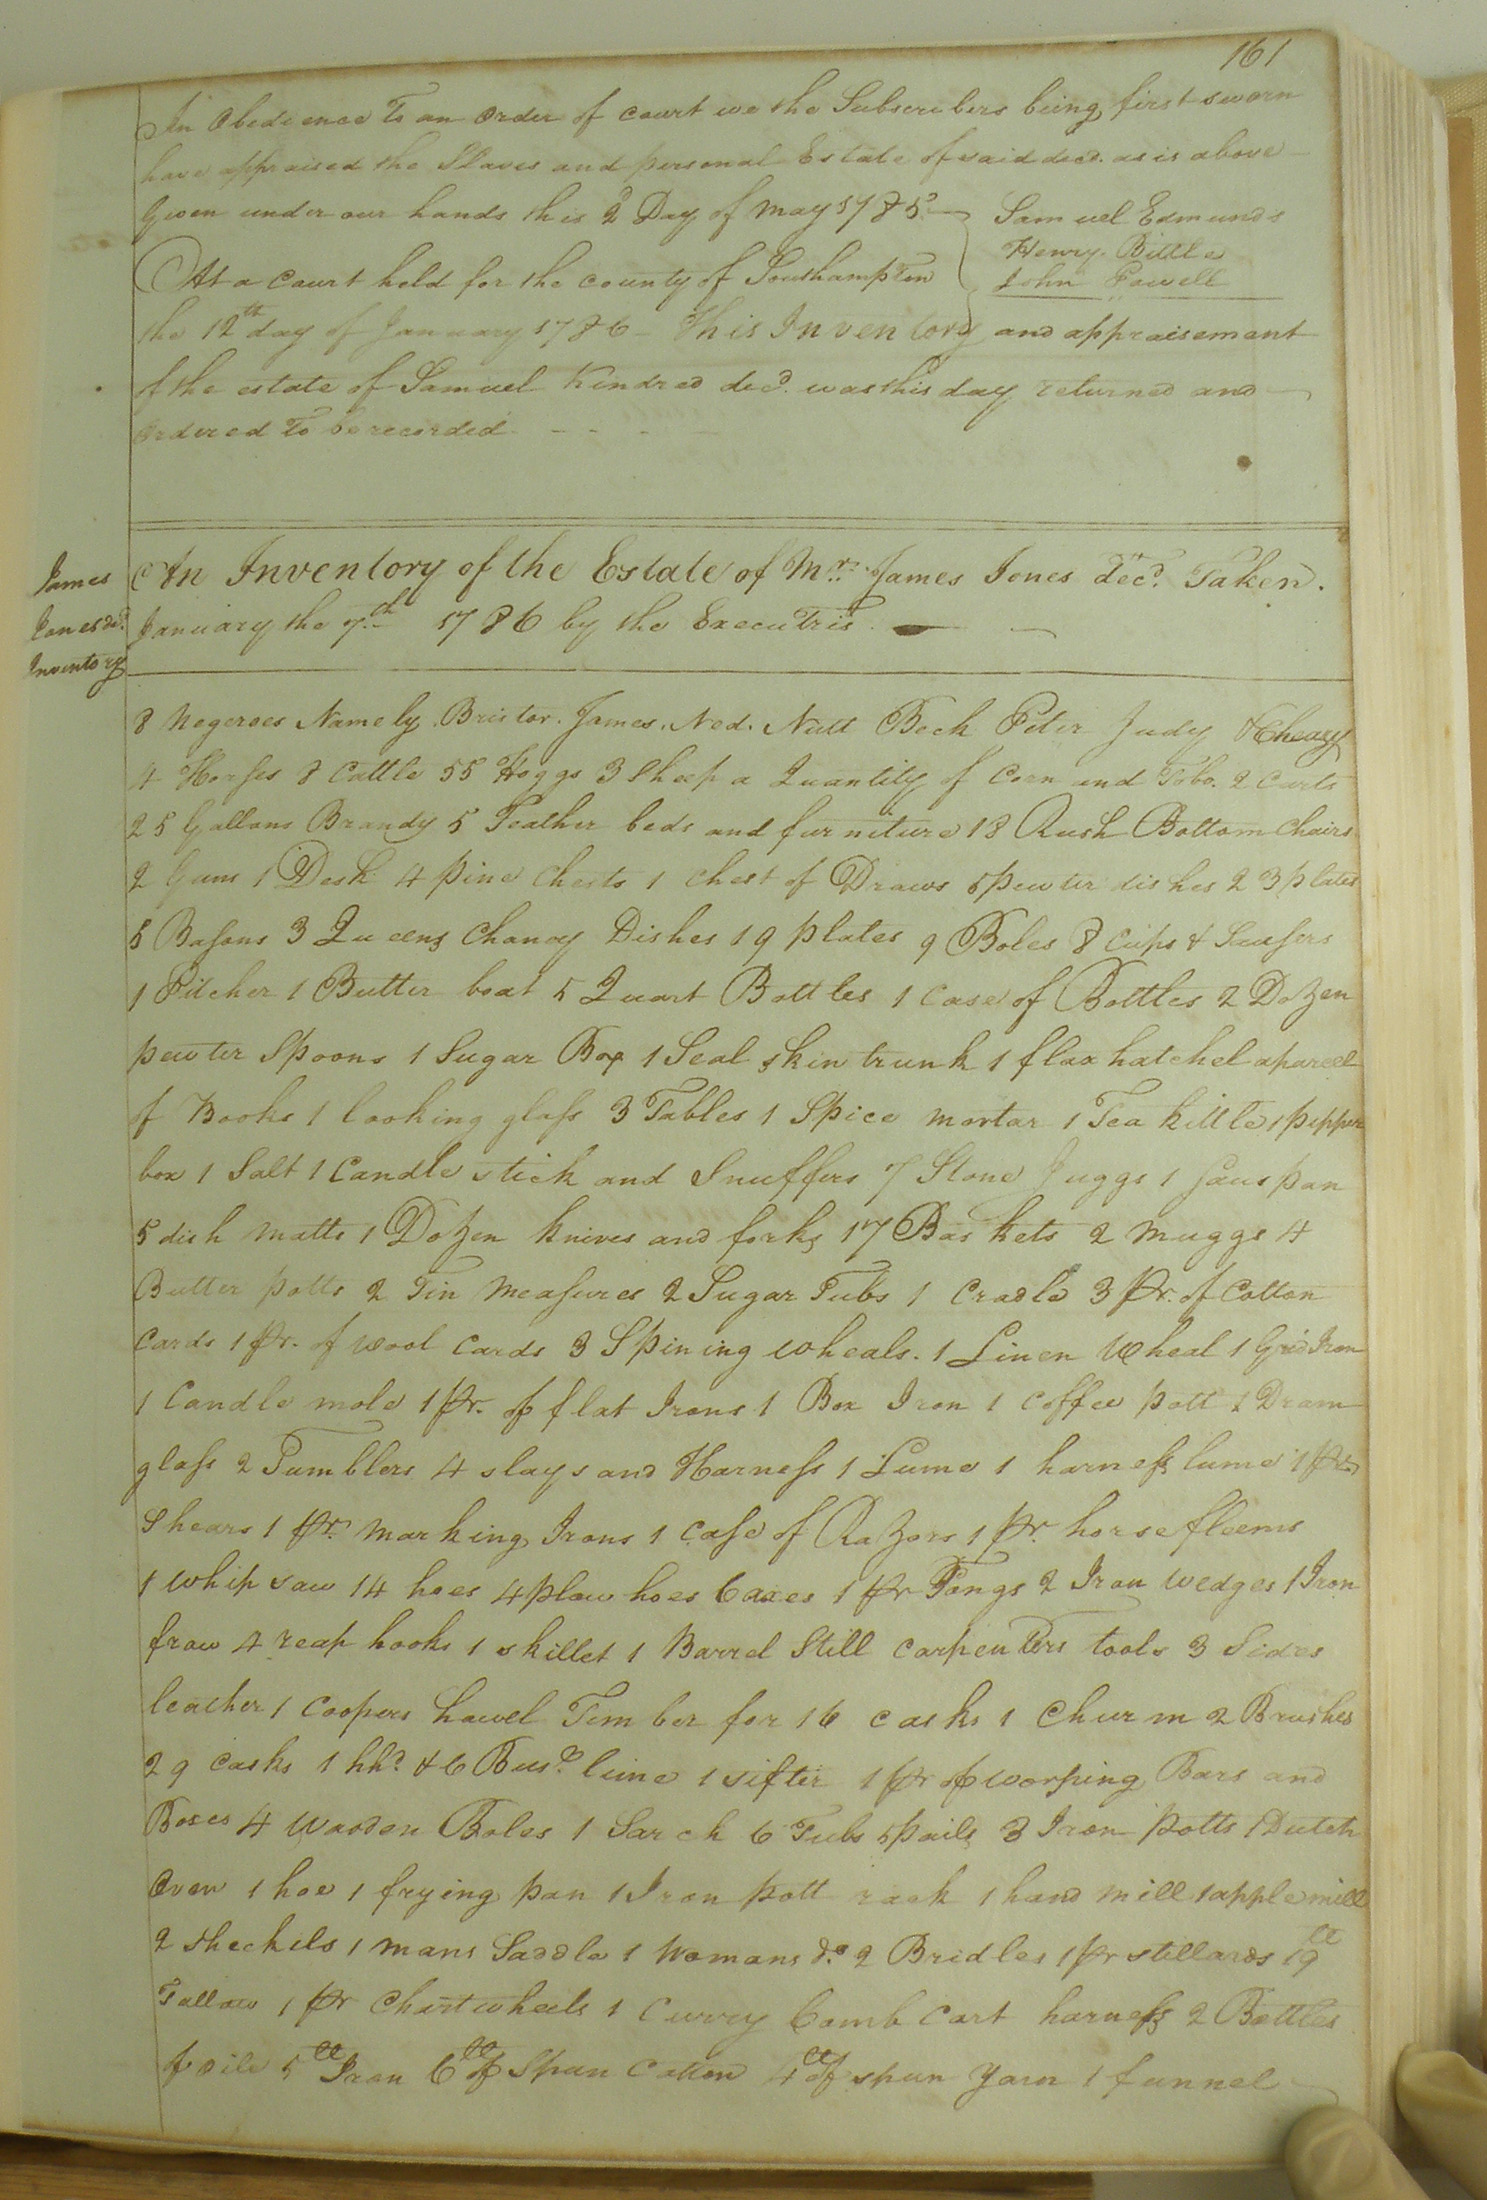 161
In Obedience To an order of court we the Subscribers being first sworn
have appraised the Slaves and personal Estate of said decd. as is above
Given under our hands this 2d Day of May 1785.
Samuel Edmunds
Henry Bittle
John Powell
At a Court held for the county of Southampton
the 12th day of January 1786 - This Inventory and appraisement
of the estate of Samuel Kindred decd. was this day returned and
ordered To be recorded - - - -
James
Jones decd.
Inventory
An Inventory of the Estate of Mr. James Jones decd. Taken.
January the 7th 1786 by the Executris
8 Negeroes Namely Bristor. James. Ned. Nutt Beck Peter Judy &
4 Horses 8 Cattle 55 Hoggs 3 Sheep a Quantity of Corn and Tobo. 2 Carts
25 Gallons Brandy 5 Feather beds and furniture 18 Rush Bottom Chairs
2 Guns 1 Desk 4 pine Chests 1 Chest of Draws 5 pewter dishes 23 plates
5 Basons 3 Queens Chanoy Dishes 19 plates 9 Boles 8 Cups & Sausers
1 Pitcher 1 Butter boat 5 Quart Bottles 1 Case of Bottles 2 Dozen
pewter Spoons 1 Sugar Box 1 Seal skin trunk 1 flax hatchel a parcell
of Books 1 looking glass 3 Tables 1 Spice mortar 1 Tea kittle 1 pepper
box 1 Salt 1 Candle stick and Snuffers 7 Stone Juggs 1 Saus pan
5 dish matts 1 Dozen knives and forks 17 Baskets 2 muggs 4
Butter potts 2 Tin Measures 2 Sugar Tubs 1 Cradle 3 pr. of Cotton
Cards 1 pr. of wool Cards 3 Spining wheals. 1 Linen Wheal 1 Grid Iron
1 Candle mole 1 pr. of flat Irons 1 Box Iron 1 Coffee pott 1 Dram
glass 2 Tumblers 4 slays and Harness 1 Lume 1 harness lume 1 pr.
Shears 1 pr. marking Irons 1 Case of Razors 1 pr. horse fleems
1 whip saw 14 hoes 4 plow hoes 6 axes 1 pr Tongs 2 Iron wedges 1 Iron
frow 4 reap hooks 1 skillet 1 Barrel Still Carpenters tools 3 Sides
leather 1 Coopers howel Timber for 16 casks 1 Churm 2 Brushes
29 casks 1 hhd. & 6 Bus. lime 1 sifter 1 pr of worping Bars and
Boxes 4 wooden Boles 1 Sarch 6 Tubs 5 pails 3 Iron potts 1 Dutch
Oven 1 hoe 1 frying pan 1 Iron pott rack 1 hand mill 1 apple mill
2 sheckels 1 mans Saddle 1 Womans do. 2 Bridles 1 pr stillards 19 tt
Tallow 1 pr Chart wheels 1 Curry Comb Cart harness 2 Bottles
of oile 5 tt Iron 6 tt of Spun Cotton 4 tt of spun Yarn 1 funnel